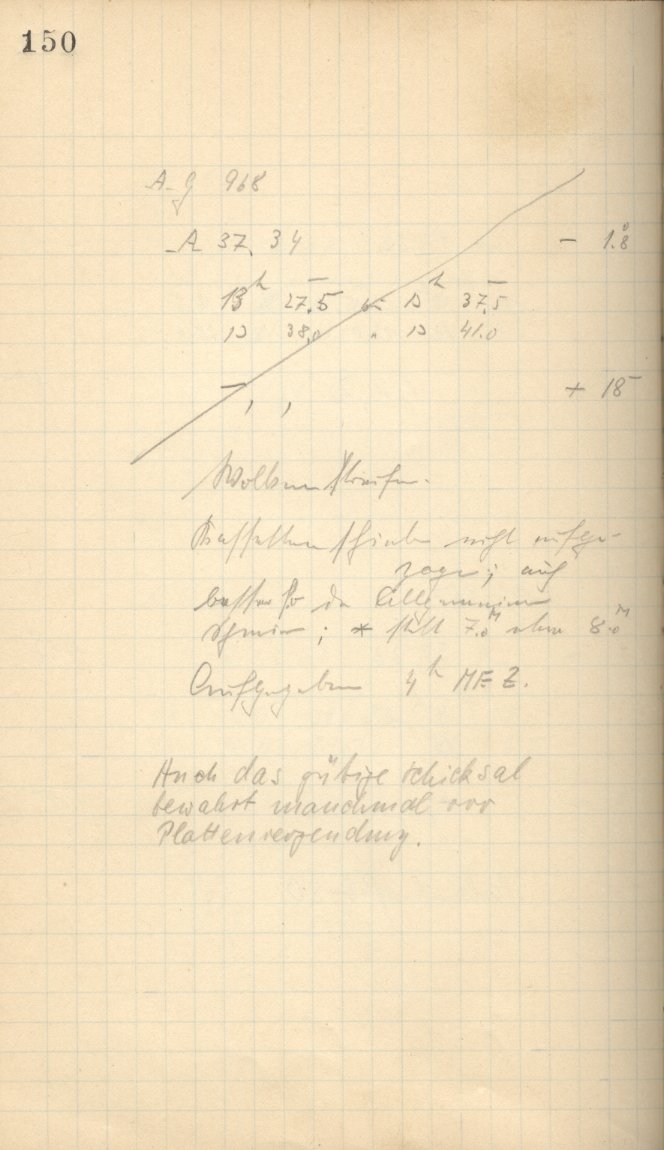 150
A-G 968
A 37, 34 - 1.8
13h 27.5 13h 37.5
13 38.0 " 13 41.0
+ 18
Wolken streifen.
Kassetten schieber nicht aufge-
zogen; auch
besser so da
; * statt 7.0M eben 8.0M
Aufgegeben 4h MEZ.
Auch das gütige Schicksal
bewahrt manchmal vor
Plattenvergeudung.